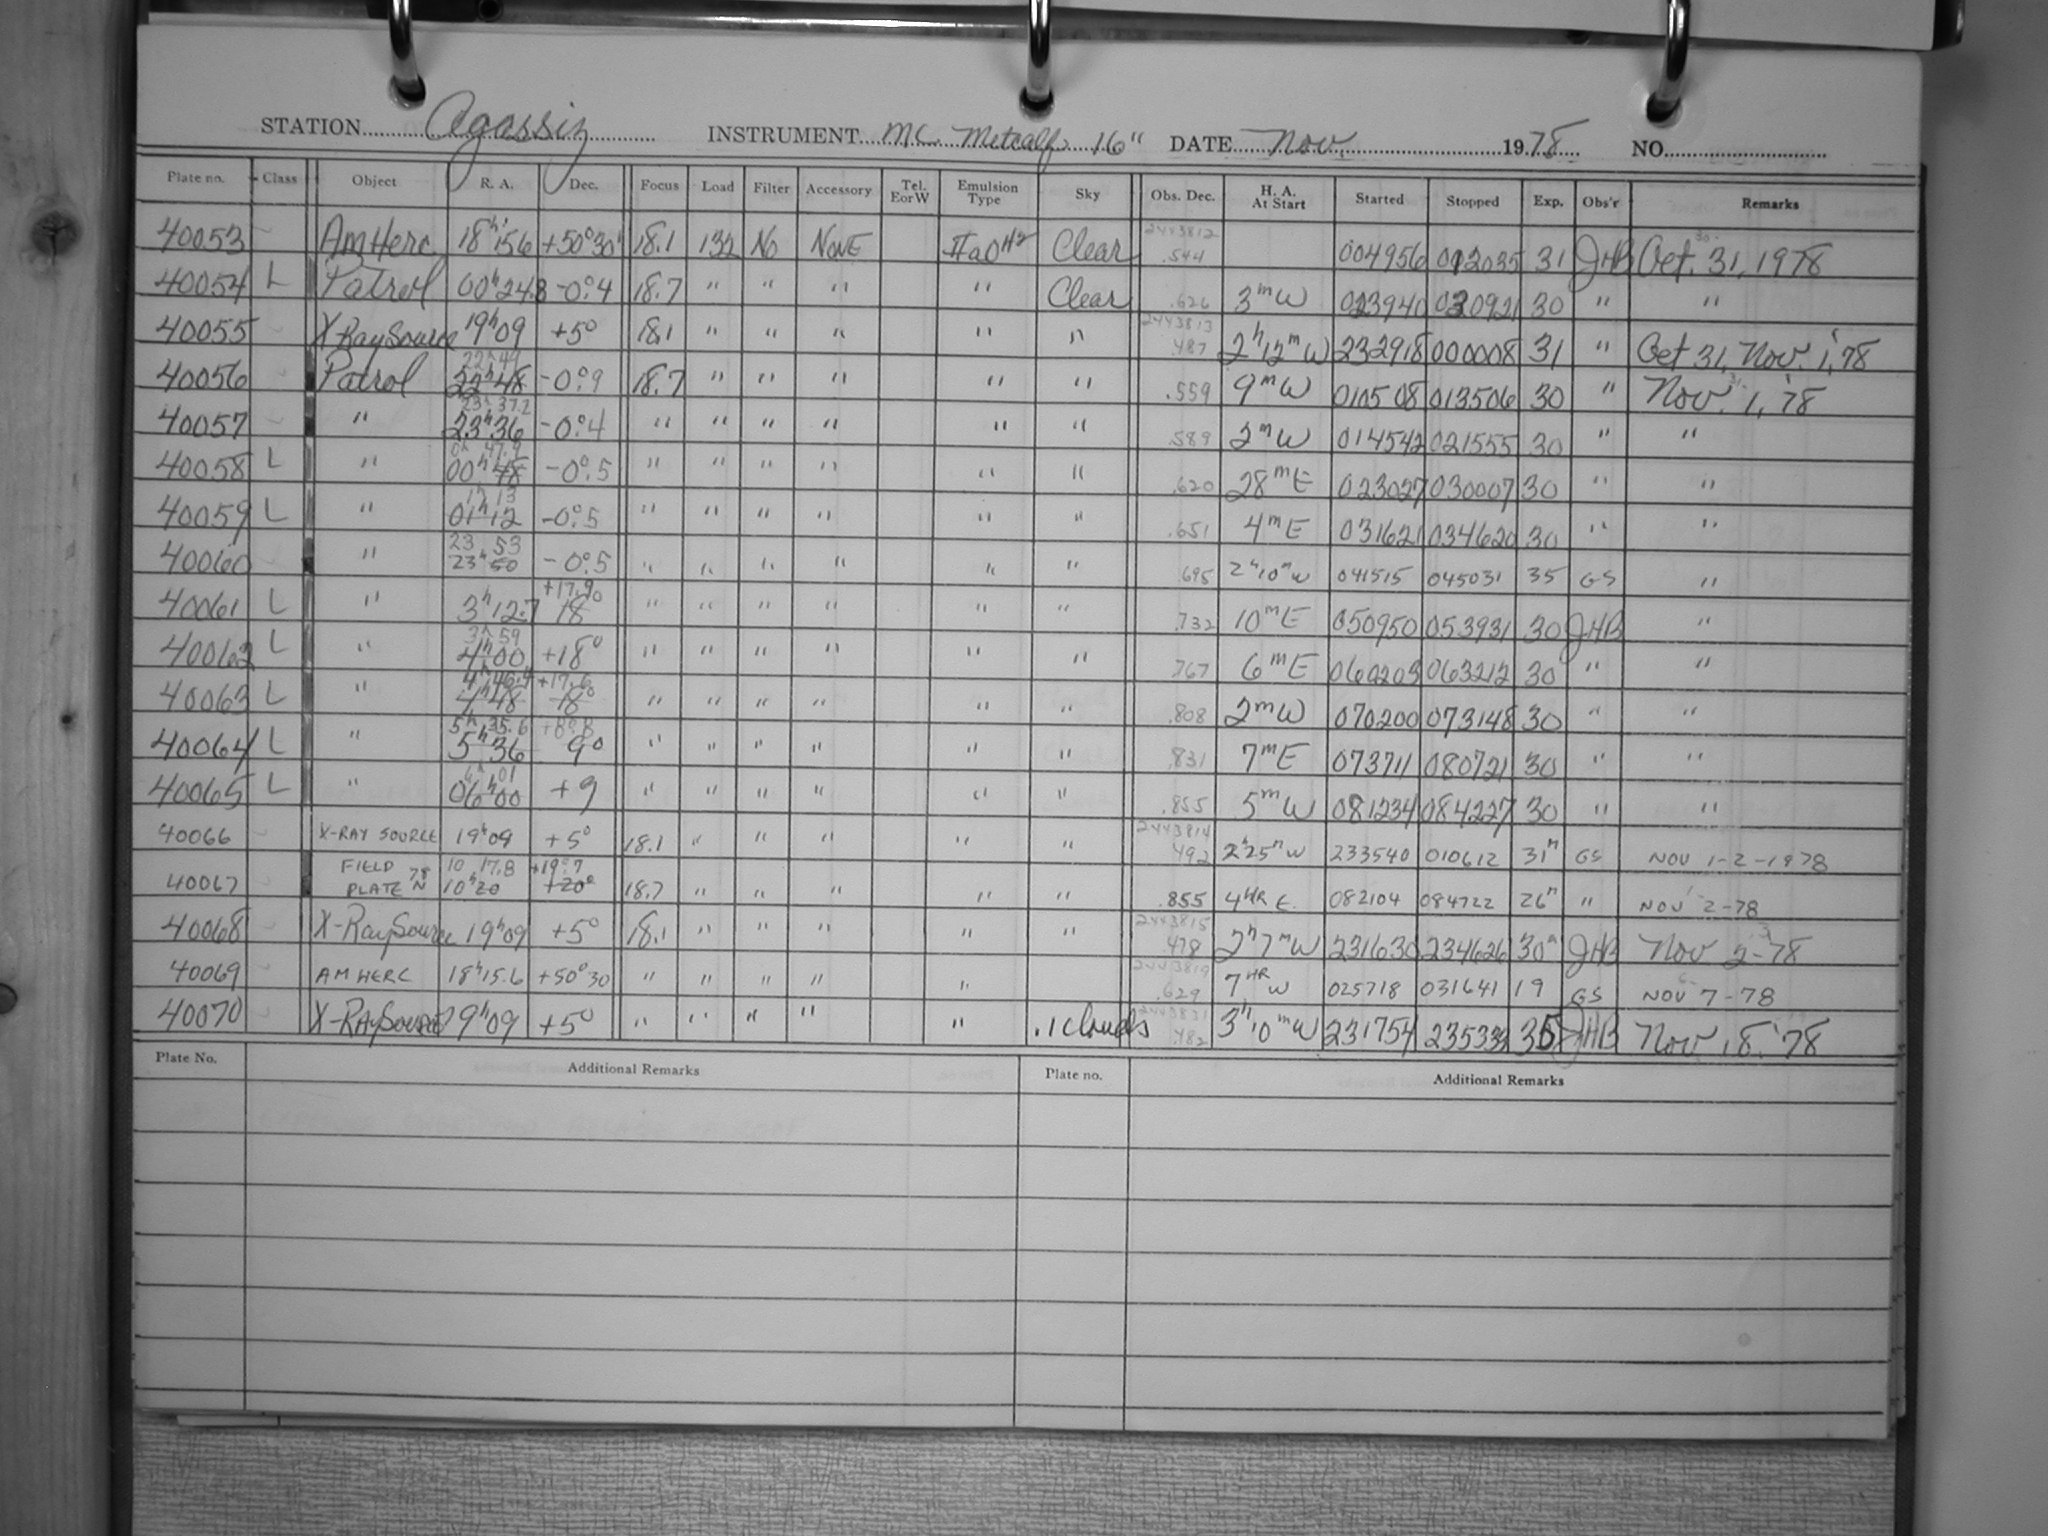 STATION Agassiz INSTRUMENT MC Metcalf 16" DATE Nov. 1978 NO.
Plate no. Class Object R. A. Dec. Focus Load Filter Accessory Tel. E or W Emulsion Type Sky Obs. Dec. H. A. At Start Started Stopped Exp. Obs'r Remarks
40053 Am Herc 18h 156 +50°30' 18.1 132 No NONE IIaO H2 Clear 2443812 .544 004956 012035 31 JHB Oct. 31, 1978
40054 L Patrol 00h24.8 -0°.4 18.7 " " " " Clear .626 3m W 023940 030921 30 " "
40055 X-Ray Source 19h09 +5° 18.1 " " " " " 2443813 .487 2h12m W 232918 000008 31 " Oct 31, Nov. 1, '78
40056 Patrol 22h49 22h48 -0°.9 18.7 " " " " " .559 9m W 010508 013506 30 " Nov. 1, '78
40057 " 23h37.2 23h36 -0°.4 " " " " " " .589 2m W 014542 021555 30 " "
40058 L " 0h 47.9 00h48 -0°.5 " " " " " " .620 28m E 023027 030007 30 " "
40059 L " 1h 13 01h12 -0°.5 " " " " " " .651 4m E 031621 034620 30 " "
40060 " 23 53 23h50 -0°.5 " " " " " " .695 2h10m W 041515 045031 35 GS "
40061 L " 3h12.7 +17.9° 18 " " " " " " .732 10m E 050950 053931 30 JHB "
40062 L " 3h 59 4h00 +18° " " " " " " .767 6m E 060203 063212 30 " "
40063 L " 4h46.4 4h48 +17.6 18° " " " " " " .808 2m W 070200 073148 30 " "
40064 L " 5h 35.6 5h36 +8°.8 9° " " " " " " .831 7m E 073711 080721 30 " "
40065 L " 6h 01 06h00 +9 " " " " " " .855 5m W 081234 084227 30 " "
40066 X-RAY SOURCE 19h09 +5° 18.1 " " " " " 2443814 .492 2h25m W 233540 010612 31m GS NOV 1-2-1978
40067 FIELD PLATE 78 N 10 17.8 10h20 +19°.7 +20° 18.7 " " " " " .855 4HR E. 082104 084722 26m " NOV 2-78
40068 X-Ray Source 19h09 +5° 18.1 " " " " " 2443815 .478 2h7m W 231630 234626 30m JHB Nov 2-78
40069 AM HERC 18h15.6 +50°30 " " " " " 2443819 .629 7HR W 025718 031641 19 GS NOV 7-78
40070 X-RAy Source 19h09 +5° " " " " " .1 clouds 2443831 .482 3h10m W 231754 235333 35 JHB Nov. 18. '78
Plate No. Additional Remarks Plate no. Additional Remarks